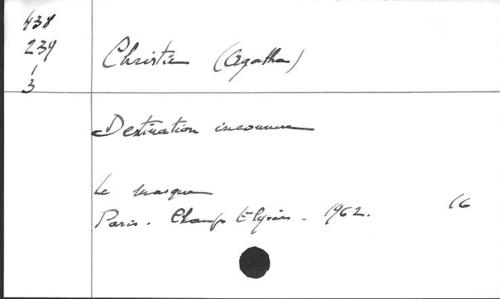 438
239
/
3
Christie (Agatha)
Destination inconnue
Le masque
Paris. Champs Elysées. 1962. 16